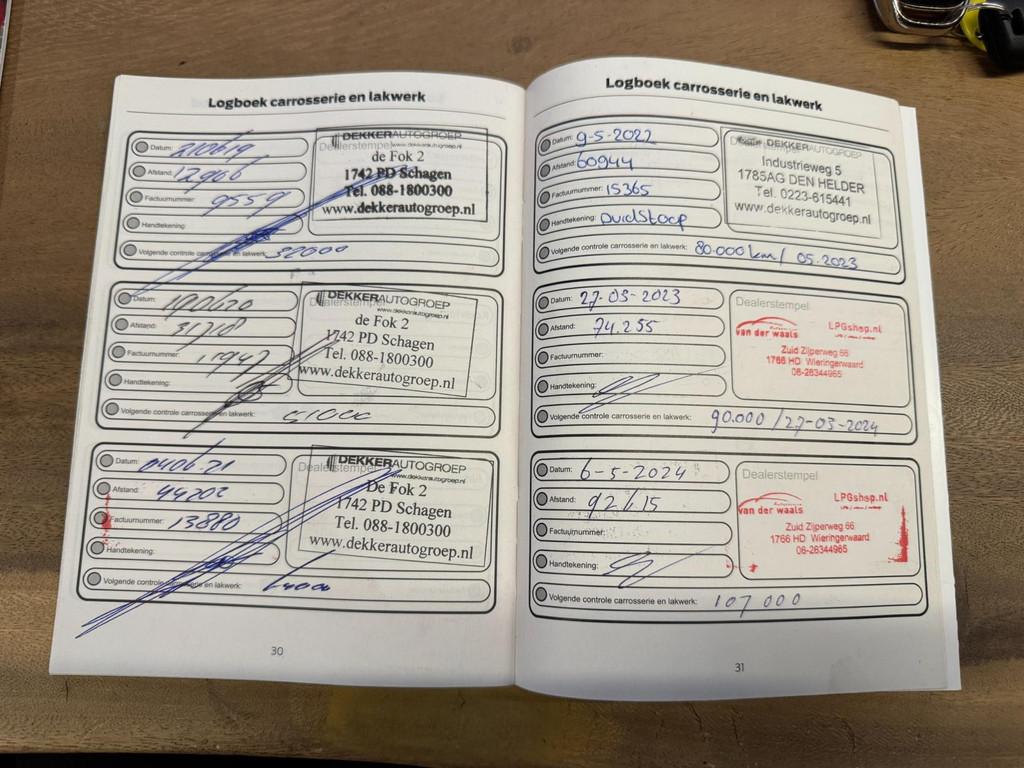 Logboek carrosserie en lakwerk
Datum: 210619
Afstand: 12966
Factuurnummer: 9559
Handtekening:
Volgende controle carrosserie en lakwerk: 32000
DEKKERAUTOGROEP
Dealerstempel www.dekkerautogroep.nl
de Fok 2
1742 PD Schagen
Tel. 088-1800300
www.dekkerautogroep.nl
Datum: 190620
Afstand: 31718
Factuurnummer: 11947
Handtekening:
Volgende controle carrosserie en lakwerk:
DEKKERAUTOGROEP
www.dekkerautogroep.nl
de Fok 2
1742 PD Schagen
Tel. 088-1800300
www.dekkerautogroep.nl
Datum: 0406.21
Afstand: 44202
Factuurnummer: 13880
Handtekening:
Volgende controle carrosserie en lakwerk: 64000
DEKKERAUTOGROEP
Dealerstempel www.dekkerautogroep.nl
De Fok 2
1742 PD Schagen
Tel. 088-1800300
www.dekkerautogroep.nl
30
Logboek carrosserie en lakwerk
Datum: 9-5-2022
Afstand: 60944
Factuurnummer: 15365
Handtekening:
Volgende controle carrosserie en lakwerk: 80.000 km / 05.2023
DEKKERAUTOGROEP
Dealerstempel www.dekkerautogroep.nl
Industrieweg 5
1785AG DEN HELDER
Tel. 0223-615441
www.dekkerautogroep.nl
Datum: 27-03-2023
Afstand: 74.255
Factuurnummer:
Handtekening:
Volgende controle carrosserie en lakwerk: 90.000 / 27-03-2024
Dealerstempel
van der waals LPGshop.nl
Zuid Zijperweg 66
1766 HD Wieringerwaard
06-26344965
Datum: 6-5-2024
Afstand: 92.615
Factuurnummer:
Handtekening:
Volgende controle carrosserie en lakwerk: 107 000
Dealerstempel
van der waals LPGshop.nl
Zuid Zijperweg 66
1766 HD Wieringerwaard
06-26344965
31